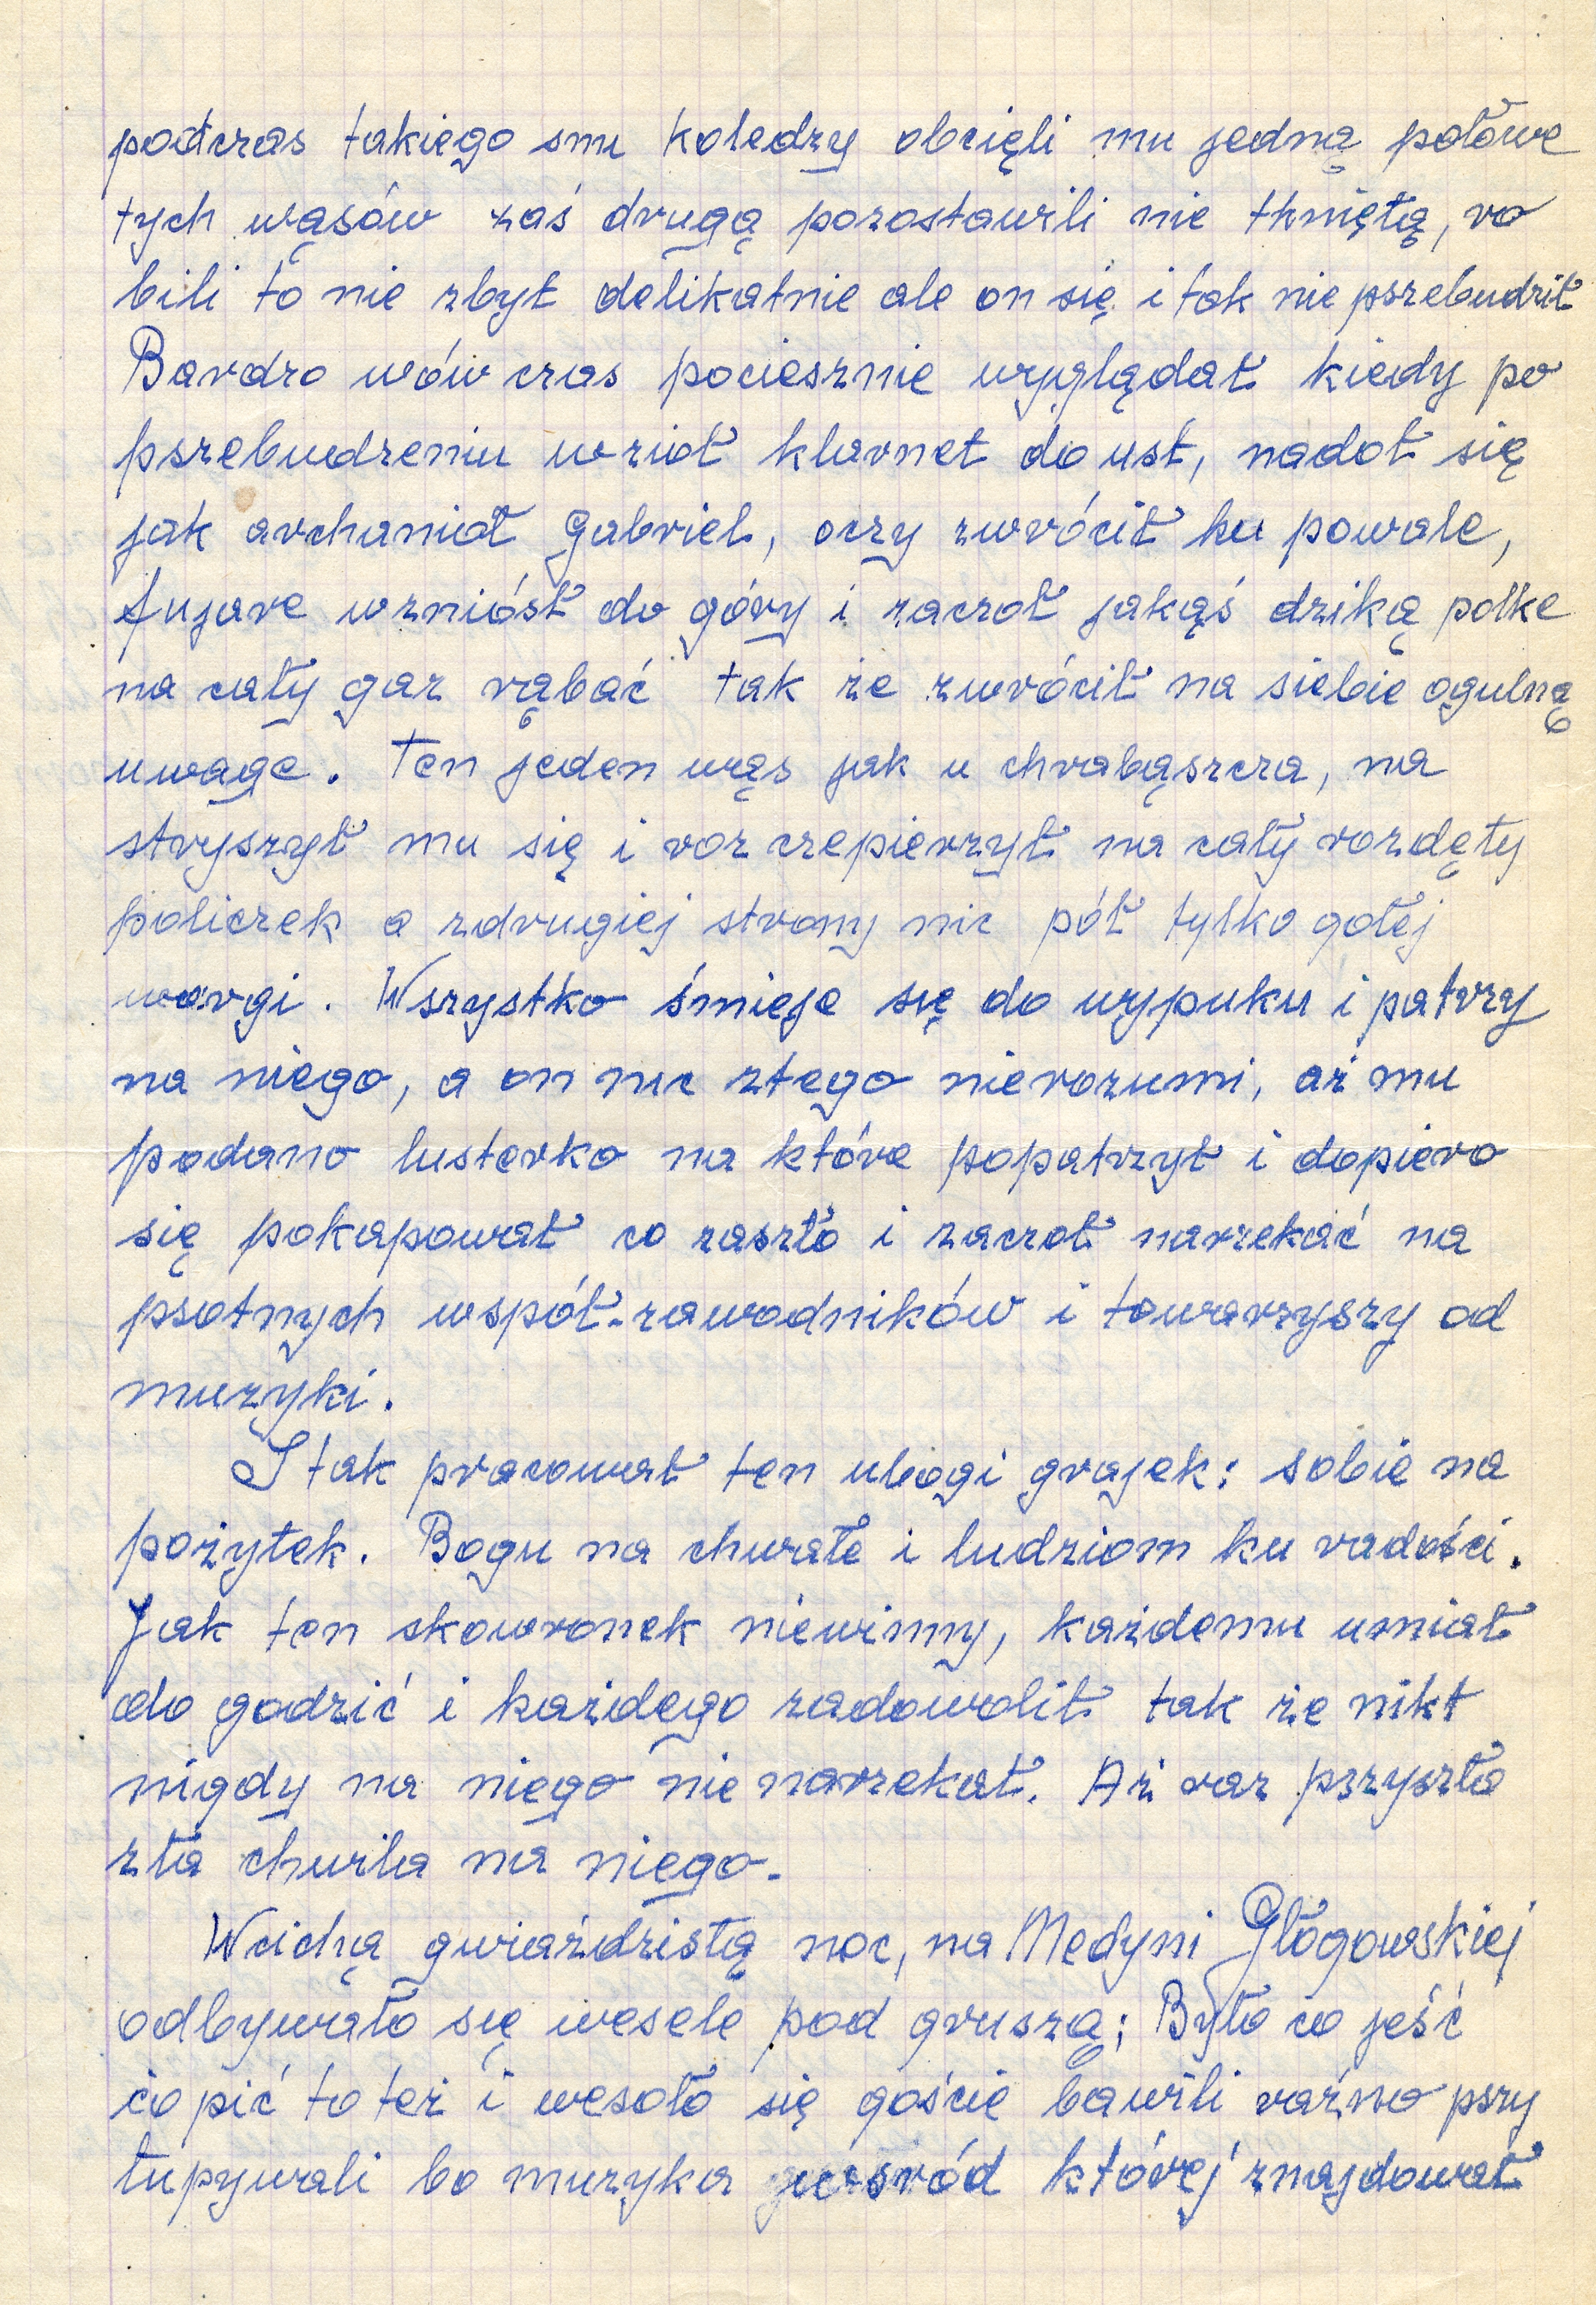 podczas takiego snu koledzy obcięli mu jedną połowe
tych wąsów zaś drugą pozostawili nie tkniętą, ro
bili to nie zbyt delikatnie ale on się i tak nie pszebudził
Bardzo wówczas pociesznie wyglądał kiedy po
pszebudzeniu wzioł klarnet do ust, nadoł się
jak archanioł Gabriel, oczy zwrócił ku powale,
fujare wzniósł do góry i zaczoł jakąś dziką polke
na cały gaz rąbać tak że zwrócił na siebie ogulną
uwage. Ten jeden wąs jak u chrabąszcza, na
stryszył mu się i roz czepierzył na cały rozdęty
policzek a zdrugiej strony nic pół tylko gołej
wargi. Wszystko śmieje się do wypuku i patrzy
na niego, a on nic ztego nierozumi, aż mu
podano lusterko na które popatrzył i dopiero
się pokapował co zaszło i zaczoł narzekać na
psotnych współ-zawodników i towarzyszy od
muzyki.
I tak pracował ten ubogi grajek: sobie na
pożytek. Bogu na chwałe i ludziom ku radości.
Jak ten skowronek niewinny, każdemu umiał
do godzić i każdego zadowolił tak że nikt
nigdy na niego nie narzekał. Aż raz pszyszła
zła chwila na niego.
Wcichą gwiaździstą noc, na Medyni Głogowskiej
odbywało się wesele pod gruszą; Było co jeść
co pić to też i wesoło się goście bawili raźno pszy
tupywali bo muzyka wśród której znajdował